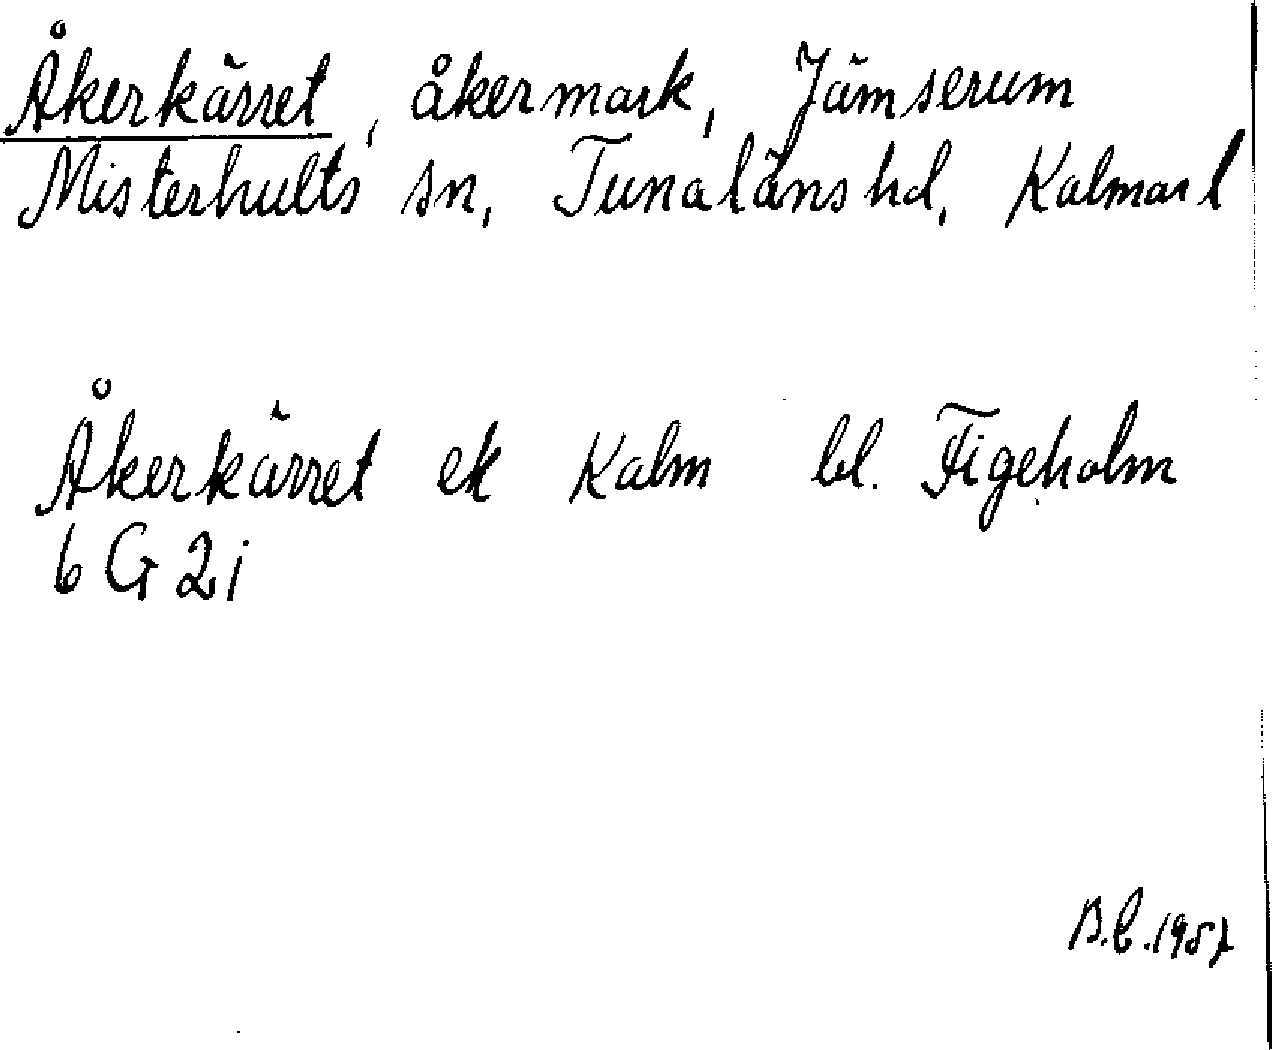 Åkerkärret, åkermark, Jämserum
Misterhults sn, Tunaläns hd, Kalmar l
Åkerkärret ek Kalm bl. Figeholm
6 G 2 i
B.C. 1957